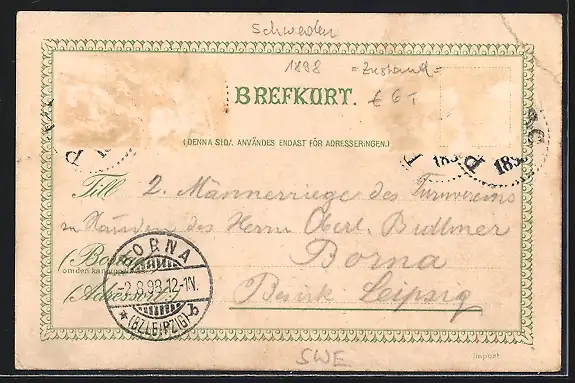 Schweden
1898 =Zustand=
BREFKORT. € 6,-
(DENNA SIDA ANVÄNDES ENDAST FÖR ADRESSERINGEN.)
189
183
Till 2. Männerriege des Turnvereins
zu Händen des Herrn Oberl.
(Bostad Borna
om den kan uppgifvas)
(Adressort) Bezirk Leipzig
BORNA
-2.8.98.12-1N.
*(BZ.LEIPZIG) b
SWE
Import